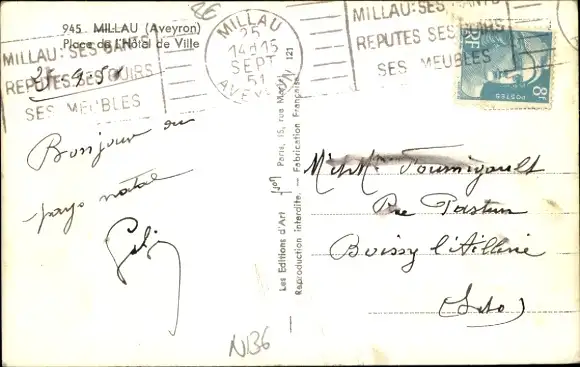 945. MILLAU (Aveyron)
Place de l'Hôtel de Ville
MILLAU: SES GANTS
REPUTES SES CUIRS
SES MEUBLES
MILLAU
25
14H15
SEPT
51
AVEYRON
121
MILLAU: SES GANTS
REPUTES SES CUIRS
SES MEUBLES
RF
POSTES
8F
Bonjour au
pays natal
Les Editions d'Art
Paris, 15, rue
Reproduction interdite. — Fabrication Française
Mr et Mme Fournigault
Rue Pasteur
Boissy l'Aillerie
(S et O)
NB6
26